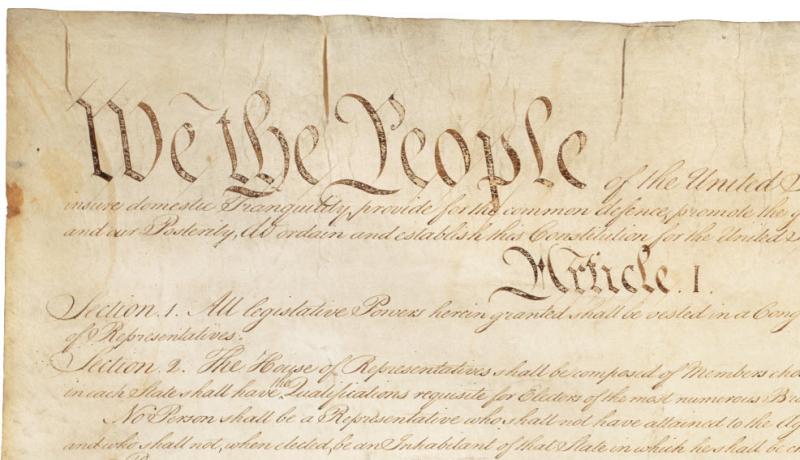 We the People of the United
insure domestic Tranquility, provide for the common defence, promote the
and our Posterity, do ordain and establish this Constitution for the United
Article. I.
Section. 1. All legislative Powers herein granted shall be vested in a Cong
of Representatives.
Section. 2. The House of Representatives shall be composed of Members cho
in each State shall have the Qualifications requisite for Electors of the most numerous Bra
No Person shall be a Representative who shall not have attained to the Ag
and who shall not, when elected, be an Inhabitant of that State in which he shall be